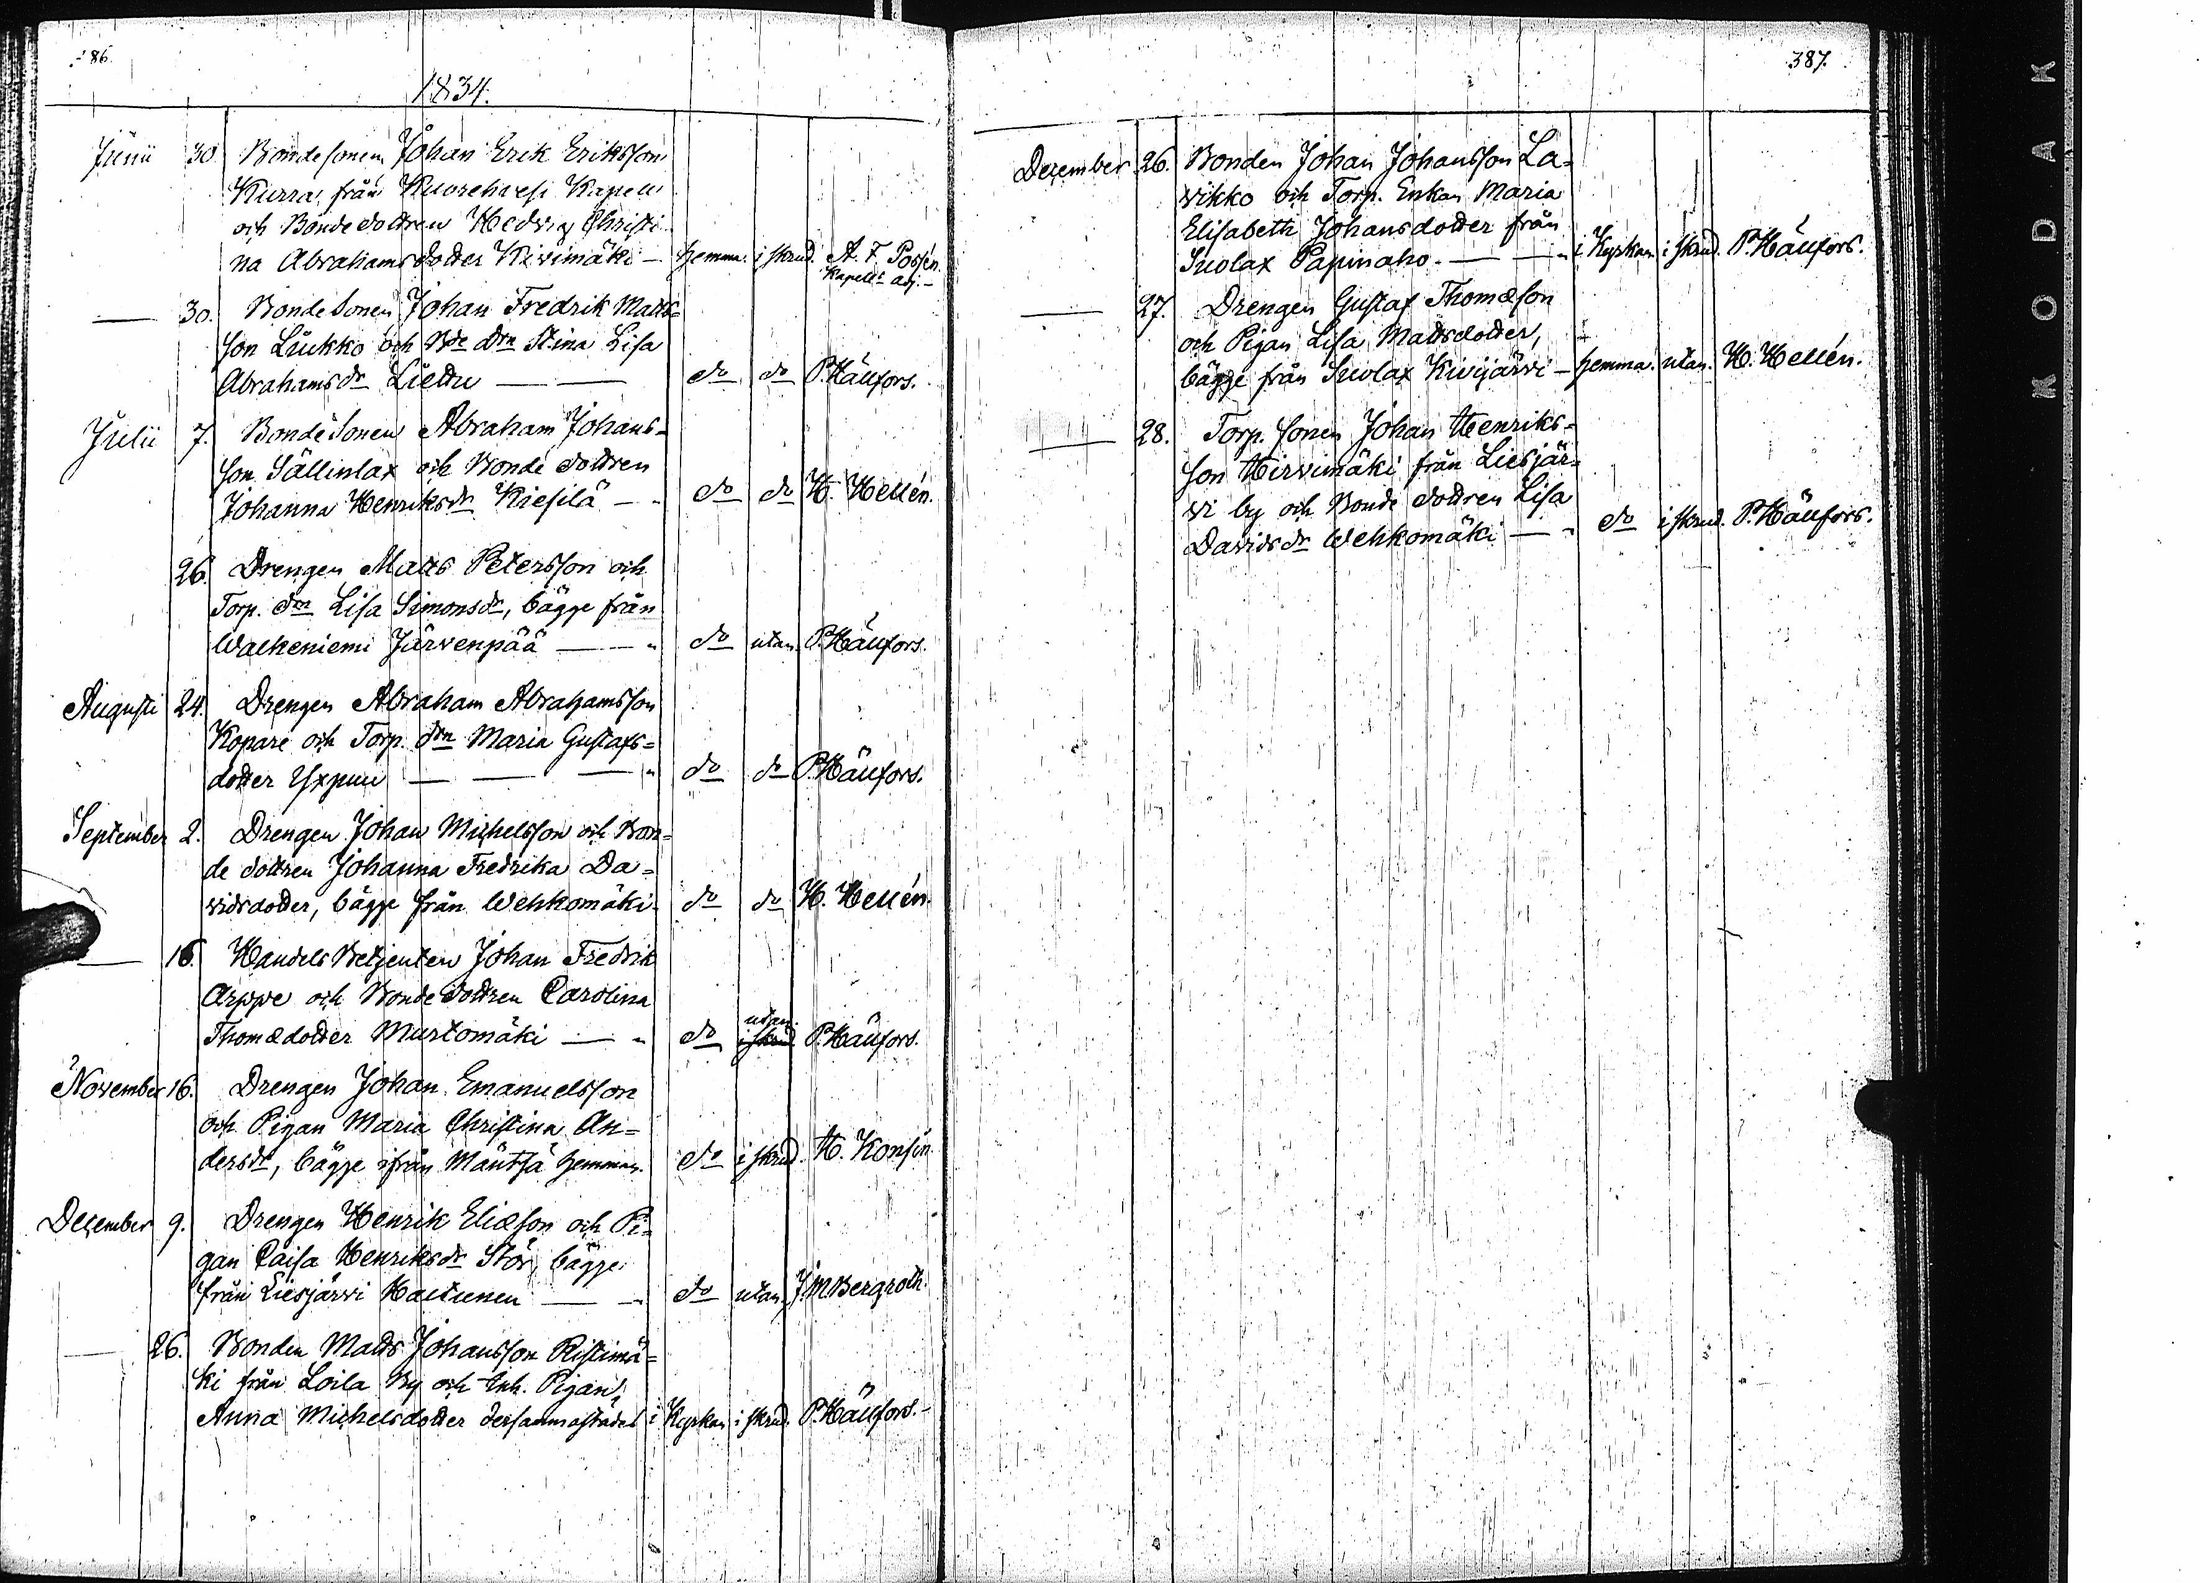 86.
1834.
Junii 30. Bondesonen Johan Erik Eriksson
Kurra, från Kuorehvesi Kapell
och Bondedottren Hedvig Christi-
na Abrahamsdotter Kivimäki — hemma. i skrud. A. F. Posén.
Kapells adj. —
— 30. Bondesonen Johan Fredrik Matts-
son Luukko och Bde drn Stina Lisa
Abrahamsdr Liettu — — do do P. Häufors.
Julii 7. Bondesonen Abraham Johans-
son Sällinlax och Bonde dottren
Johanna Henriksdr Kiesilä — do do H. Hellén.
26. Drengen Matts Petersson och
Torp. drn Lisa Simonsdr, bägge från
Walkeniemi Järvenpää — — do utan P. Häufors.
Augusti 24. Drengen Abraham Abrahamsson
Kopare och Torp. drn Maria Gustafs-
dotter Yxpuu — — — do do P. Häufors.
September 2. Drengen Johan Michelsson och Bon-
de dottren Johanna Fredrika Da-
vidsdotter, bägge från Wehkomäki. do do H. Hellén.
— 16. Handels Betjenten Johan Fredrik
Arppe och Bonde dottren Carolina
utan
Thomædotter Murtomäki — do i skrud P. Häufors.
November 16. Drengen Johan Emanuelsson
och Pigan Maria Christina An-
dersdr, bägge ifrån Mäntsä hemman. do i skrud. H. Konsin
December 9. Drengen Henrik Eliæson och Pi-
gan Caisa Henriksdr Stör, bägge
från Liesjärvi Haltunen — do utan. J. M Bergroth.
— 26. Bonden Matts Johansson Ristimä-
ki från Loila By och Inh. Pigan,
Anna Michelsdotter dersammastädes i Kyrkan i skrud. P. Häufors. —
387.
December 26. Bonden Johan Johansson La-
vikko och Torp. Enkan Maria
Elisabeth Johansdotter från
Suolax Papinaho. — — i Kyrkan i skrud. P. Häufors.
— 27. Drengen Gustaf Thomæson
och Pigan Lisa Mattsdotter,
bägge från Suolax Kivijärvi — hemma. utan. H. Hellén.
— 28. Torp. sonen Johan Henriks-
son Hirvimäki från Liesjär-
vi by och Bonde dottren Lisa
Davidsdr Wehkomäki — do i skrud. P. Häufors.
KODAK